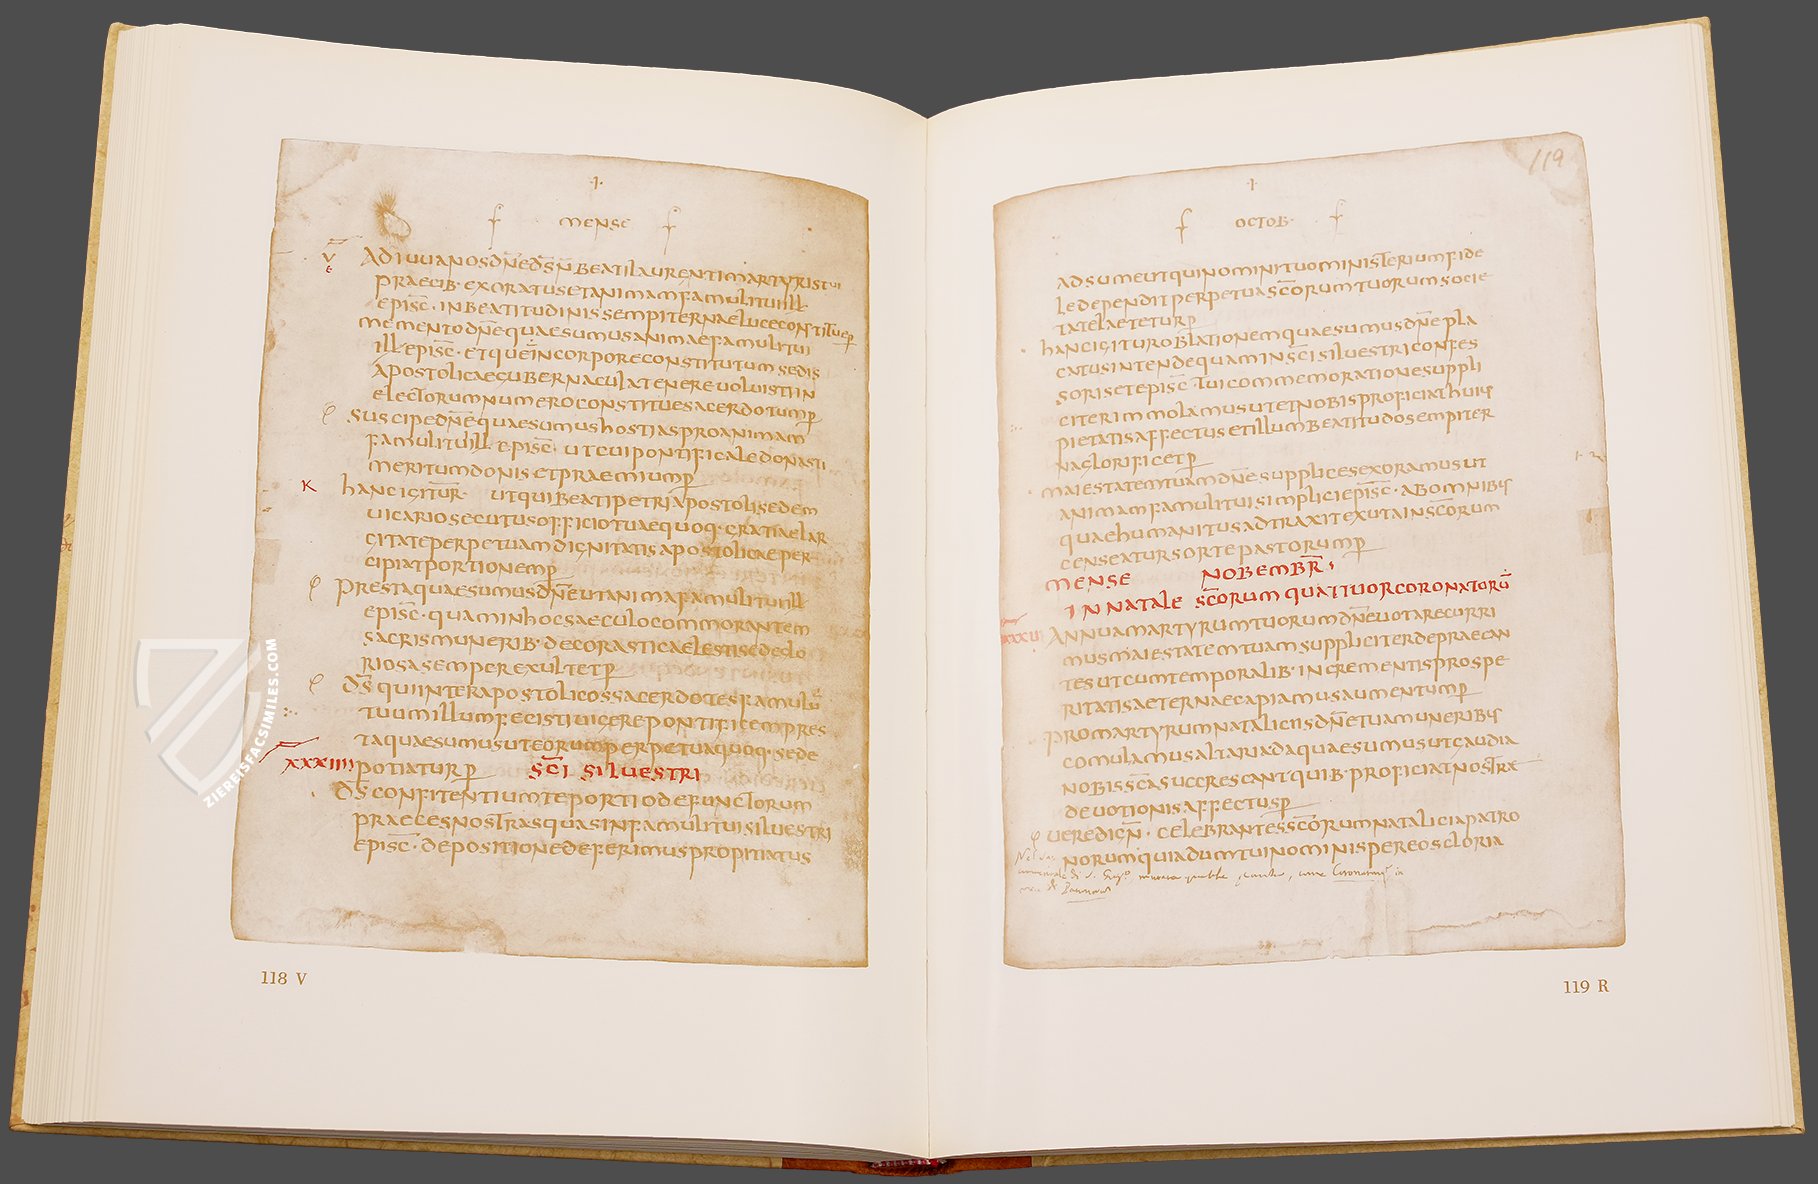 ·I·
MENSE
V
E
ADIUUANOSDN̄EDS̄N̄BEATILAURENTIMARTYRISTUI
PRAECIB·EXORATUSETANIMAMFAMULITUIILL·
EPISC̄·INBEATITUDINISSEMPITERNAELUCECONSTITUEP̄
MEMENTODN̄EQUAESUMUSANIMAEFAMULITUI
ILL·EPISC̄·ETQUEINCORPORECONSTITUTUMSEDIS
APOSTOLICAEGUBERNACULATENEREUOLUISTIIN
ELECTORUMNUMEROCONSTITUESACERDOTUMP̄
SUSCIPEDN̄EQUAESUMUSHOSTIASPROANIMAM
FAMULITUIILL·EPISC̄·UTCUIPONTIFICALEDONASTI
MERITUMDONISETPRAEMIUMP̄
K HANCIGITUR· UTQUIBEATIPETRIAPOSTOLISEDEM
UICARIOSECUTUSOFFICIOTUAEQUOQ·GRATIAELAR
GITATEPERPETUAMDIGNITATISAPOSTOLICAEPER
CIPIATPORTIONEMP̄
PRESTAQUAESUMUSDN̄EUTANIMAFAMULITUIILL
EPISC̄·QUAMINHOCSAECULOCOMMORANTEM
SACRISMUNERIB·DECORASTICAELESTISEDEGLO
RIOSASEMPEREXULTETP̄
DS̄QUIINTERAPOSTOLICOSSACERDOTESFAMULŪ
TUUMILLUMFECISTIUIGEREPONTIFICEMPRES
TAQUAESUMUSUTEORUMPERPETUAQUOQ·SEDE
XXXIIII POTIATURP̄ SC̄I SILUESTRI
DS̄CONFITENTIUMTEPORTIODEFUNCTORUM
PRAECESNOSTRASQUASINFAMULITUISILUESTRI
EPISC̄·DEPOSITIONEDEFERIMUSPROPITIATUS
118 V
119
·I·
OCTOB·
ADSUMEUTQUINOMINITUOMINISTERIUMFIDE
LEDEPENDITPERPETUASC̄ORUMTUORUMSOCIE
TATELAETETURP̄
HANCIGITUROBLATIONEMQUAESUMUSDN̄EPLA
CATUSINTENDEQUAMINSC̄ISILUESTRICONFES
SORISETEPISC̄·TUICOMMEMORATIONESUPPLI
CITERIMMOLAMUSUTETNOBISPROFICIATHUIUS
PIETATISAFFECTUSETILLUMBEATITUDOSEMPITER
NAGLORIFICETP̄
MAIESTATEMTUAMDN̄ESUPPLICESEXORAMUSUT
ANIMAMFAMULITUISIMPLICIEPISC̄·ABOMNIBUS
QUAEHUMANITUSADTRAXITEXUTAINSC̄ORUM
CENSEATURSORTEPASTORUMP̄
MENSE NOBEMBR̄·
IN NATALE SC̄ORUM QUATTUORCORONATORŪ
XXXU ANNUAMARTYRUMTUORUMDN̄EUOTARECURRI
MUSMAIESTATEMTUAMSUPPLICITERDEPRAECAN
TESUTCUMTEMPORALIB·INCREMENTISPROSPE
RITATISAETERNAECAPIAMUSAUMENTUMP̄
PROMARTYRUMNATALICIISDN̄ETUAMUNERIBUS
COMULAMUSALTARIADAQUAESUMUSUTGAUDIA
NOBISSC̄ASUCCRESCANTQUIB·PROFICIATNOSTRAE
DEUOTIONISAFFECTUSP̄
UEREDIGN̄·CELEBRANTESSC̄ORUMNATALICIAPATRO
NORUMQUIADUMTUINOMINISPEREOSGLORIA
119 R
ZIEREISFACSIMILES.COM